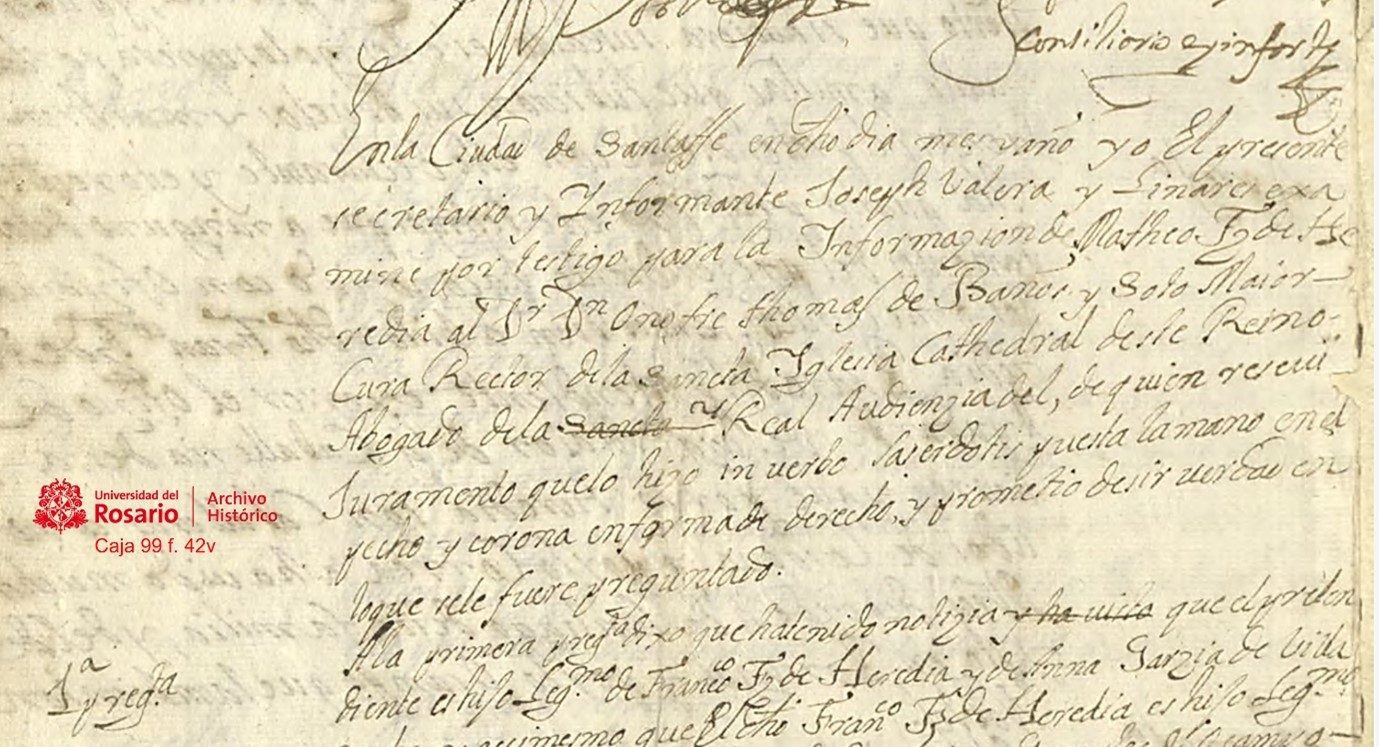 Consiliario e ynforte
En la Ciudad de Santaffe en dho dia mes y año yo El presente
secretario y Ynformante Joseph Valera y Linares exa
mine por testigo para la Informazion de Matheo Fz de He
redia al Dr Dn Onofre thomas de Baños y Soto Maior
Cura Rector dela Sancta Iglesia Cathedral deste Reino
Abogado dela Sancta Real Audienzia del, de quien reseui
Juramento quelo hizo in verbo saserdotis puesta la mano en el
pecho y corona enforma de derecho, y prometio desir verdad en
loque sele fuere preguntado.
1a pregta
Ala primera pregta dixo que hatenido notizia y ha visto que el preten
diente es hijo Legmo de Franco Fz de Heredia y de Anna Garzia de Villa
y assimesmo que El dho Franco Fz de Heredia es hijo Legmo
Universidad del
Rosario
Archivo
Histórico
Caja 99 f. 42v